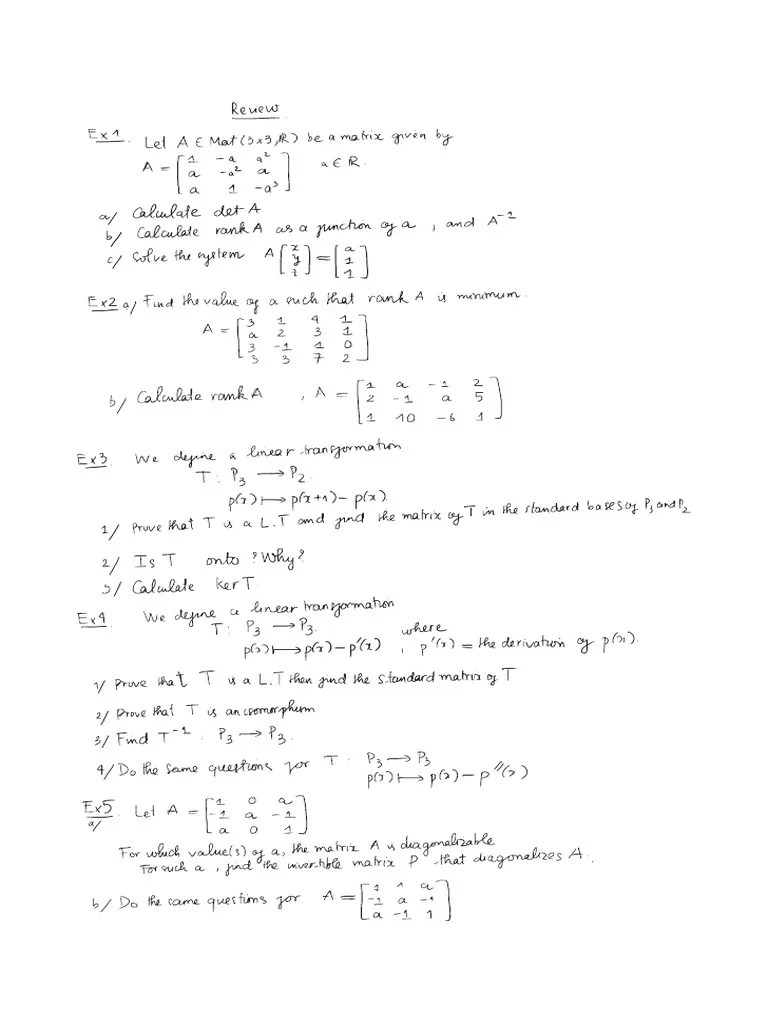 Review
Ex1. Let A ∈ Mat(3x3,ℝ) be a matrix given by
A = [1 -a a²; a -a² a; a 1 -a³] a ∈ ℝ.
a/ Calculate det A
b/ Calculate rank A as a function of a, and A⁻¹
c/ Solve the system A [x; y; z] = [a; 1; 1]
Ex2 a/ Find the value of a such that rank A is minimum.
A = [3 1 4 1; a 2 3 1; 3 -1 1 0; 3 3 7 2]
b/ Calculate rank A, A = [1 a -1 2; 2 -1 a 5; 1 10 -6 1]
Ex3. We define a linear transformation
T: P₃ → P₂
p(x) ↦ p(x+1) - p(x)
1/ Prove that T is a L.T and find the matrix of T in the standard bases of P₃ and P₂
2/ Is T onto? Why?
3/ Calculate ker T
Ex4. We define a linear transformation
T: P₃ → P₃. where
p(x) ↦ p(x) - p'(x), p'(x) = the derivation of p(x).
1/ Prove that T is a L.T then find the standard matrix of T
2/ Prove that T is an isomorphism
3/ Find T⁻¹. P₃ → P₃.
4/ Do the same questions for T: P₃ → P₃
p(x) ↦ p(x) - p''(x)
Ex5. Let A = [1 0 a; -1 a -1; a 0 1]
a/
For which value(s) of a, the matrix A is diagonalizable
For such a, find the invertible matrix P that diagonalizes A.
b/ Do the same questions for A = [1 1 a; -1 a -1; a -1 1]